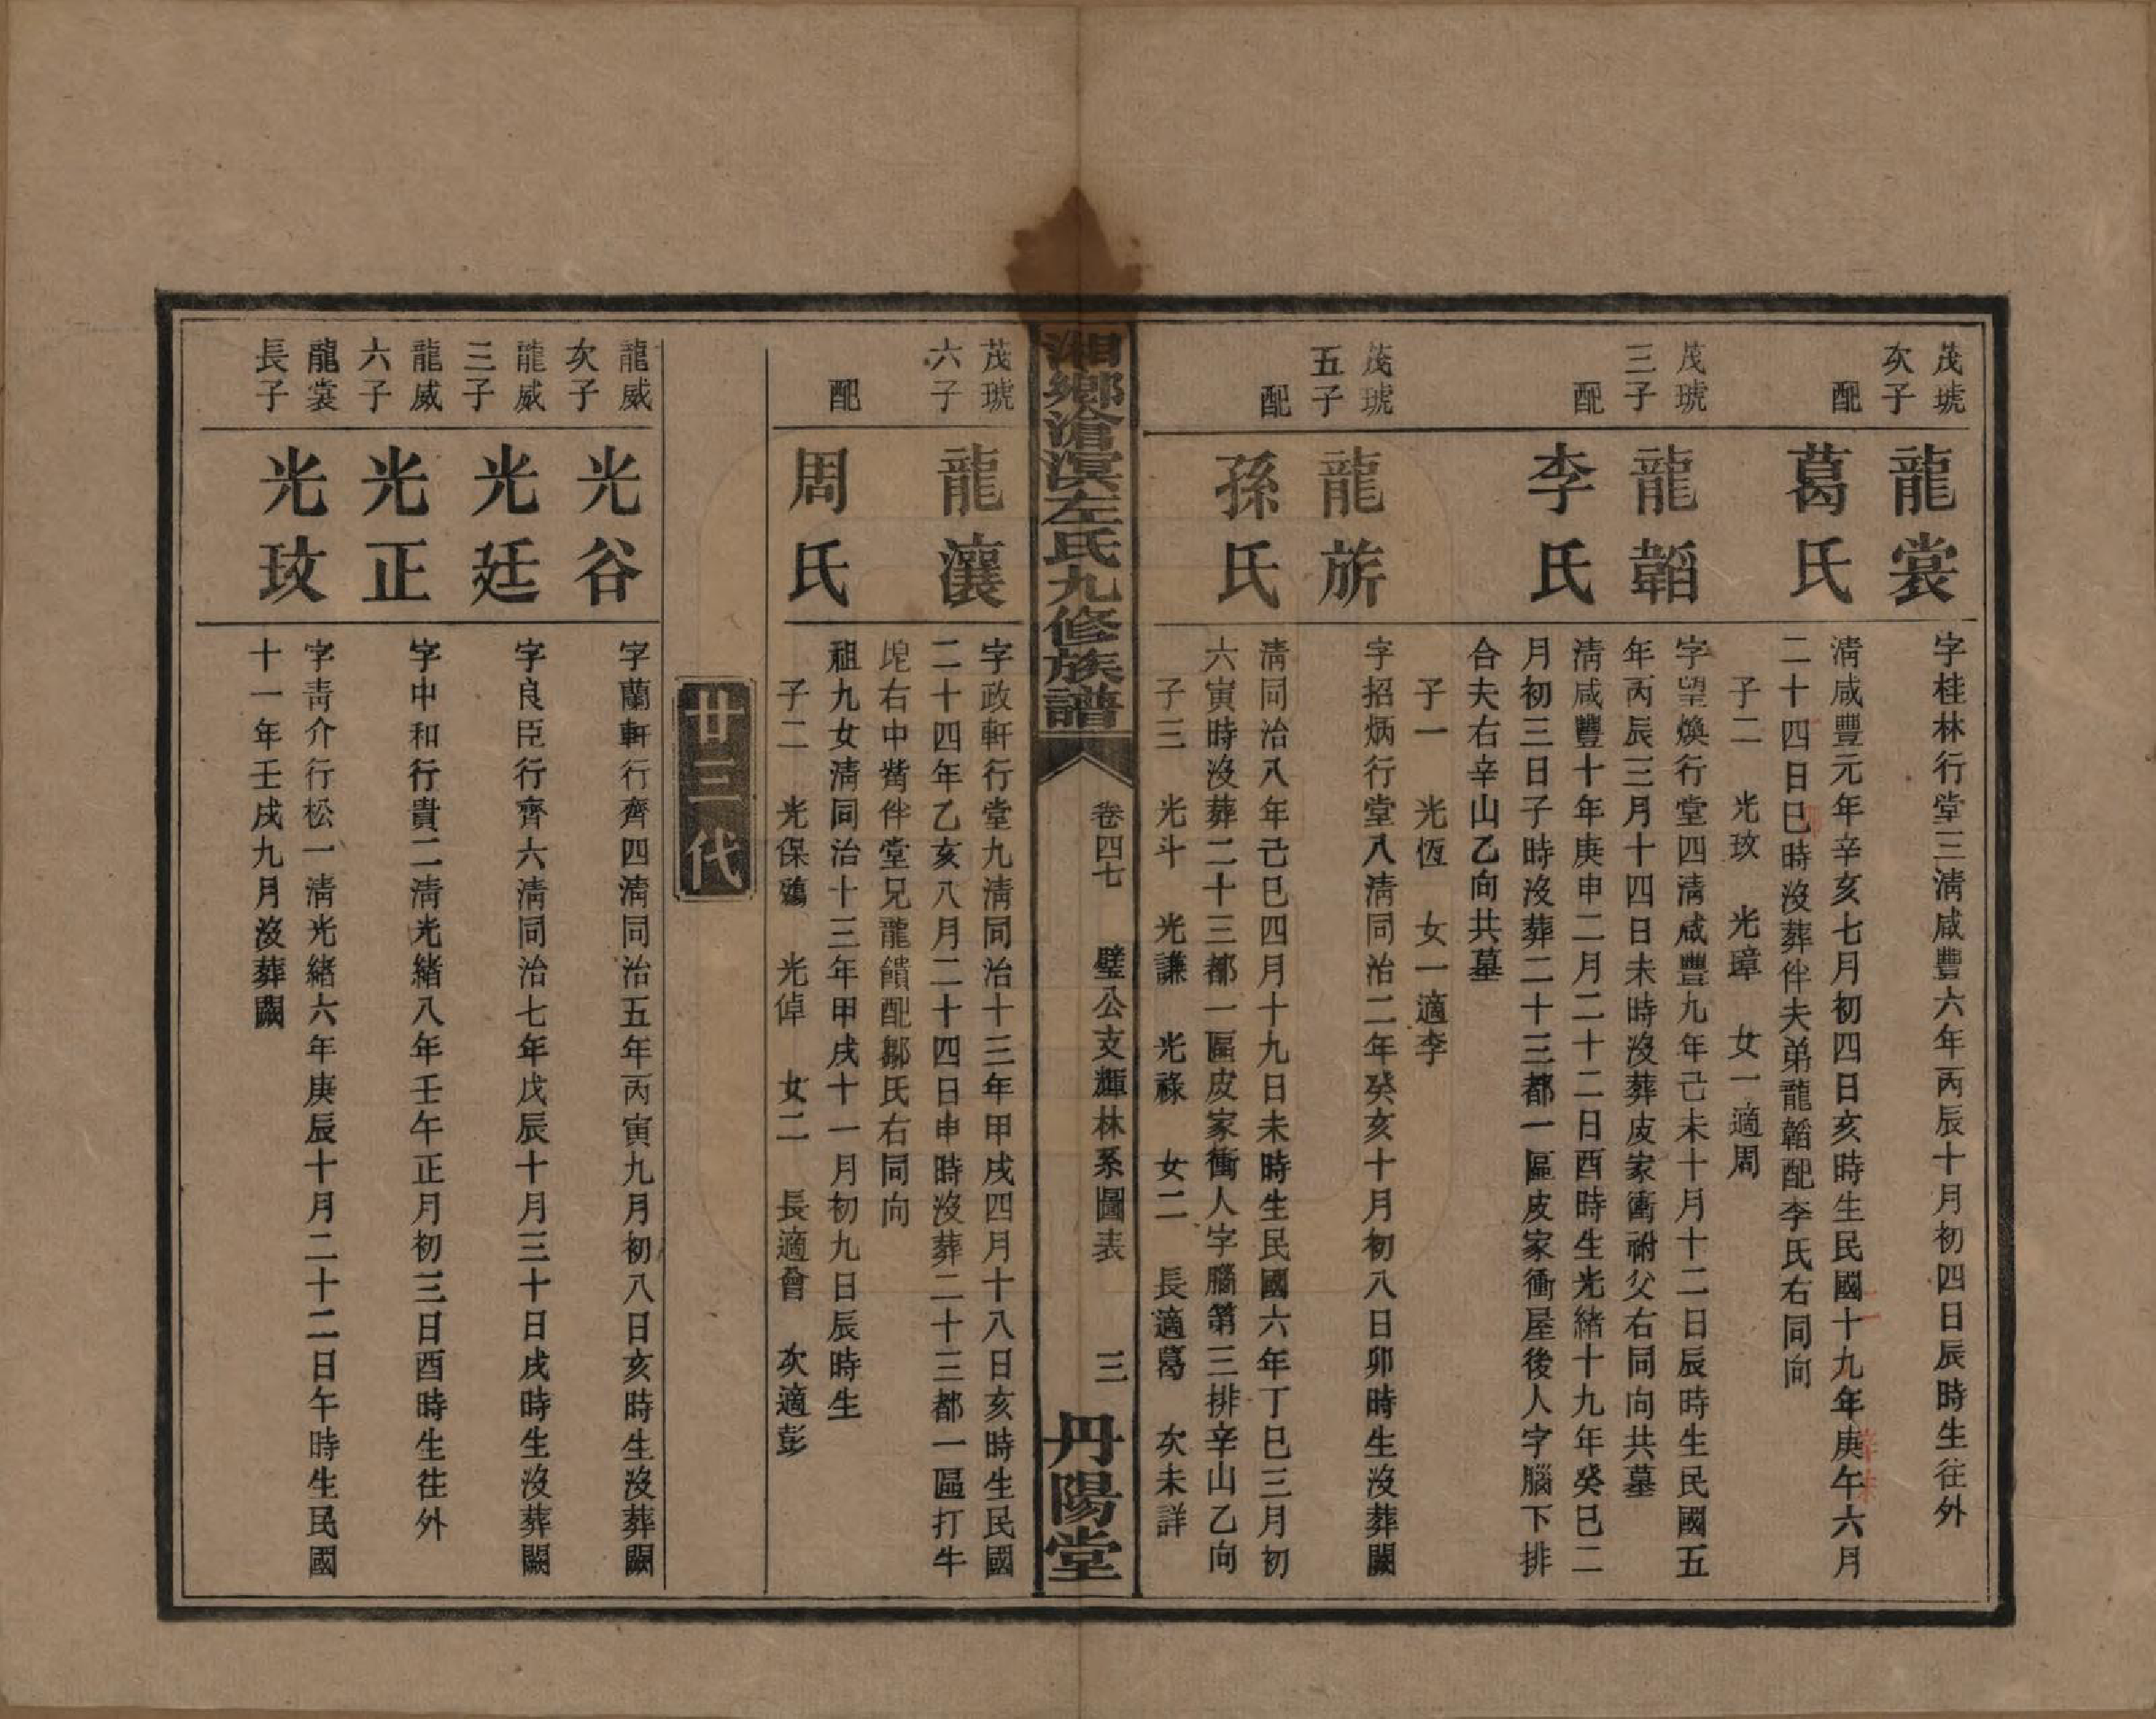 茂琥
次子
龍裳
字桂林行堂三清咸豐六年丙辰十月初四日辰時生往外
配
葛氏
清咸豐元年辛亥七月初四日亥時生民國十九年庚午六月
二十四日巳時沒葬伴夫弟龍韜配李氏右同向
子二　光玟　光璋　女一適周
茂琥
三子
龍韜
字望煥行堂四清咸豐九年己未十月十二日辰時生民國五
年丙辰三月十四日未時沒葬皮家衝祔父右同向共墓
配
李氏
清咸豐十年庚申二月二十二日酉時生光緒十九年癸巳二
月初三日子時沒葬二十三都一區皮家衝屋後人字腦下排
合夫右辛山乙向共墓
子一　光恆　女一適李
茂琥
五子
龍旂
字招炳行堂八清同治二年癸亥十月初八日卯時生沒葬闕
配
孫氏
清同治八年己巳四月十九日未時生民國六年丁巳三月初
六寅時沒葬二十三都一區皮家衝人字腦第三排辛山乙向
子三　光斗　光謙　光祿　女二　長適葛　次未詳
湘鄉滄溟左氏九修族譜
卷四七　璧公支輝林系圖表　三
丹陽堂
茂琥
六子
龍瀼
字政軒行堂九清同治十三年甲戌四月十八日亥時生民國
二十四年乙亥八月二十四日申時沒葬二十三都一區打牛
坭右中觜伴堂兄龍饋配鄒氏右同向
配
周氏
祖九女清同治十三年甲戌十一月初九日辰時生
子二　光保殤　光倬　女二　長適曾　次適彭
廿三代
龍威
次子
光谷
字蘭軒行齊四清同治五年丙寅九月初八日亥時生沒葬闕
龍威
三子
光廷
字良臣行齊六清同治七年戊辰十月三十日戌時生沒葬闕
龍威
六子
光正
字中和行貴二清光緒八年壬午正月初三日酉時生往外
龍裳
長子
光玟
字青介行松一清光緒六年庚辰十月二十二日午時生民國
十一年壬戌九月沒葬闕